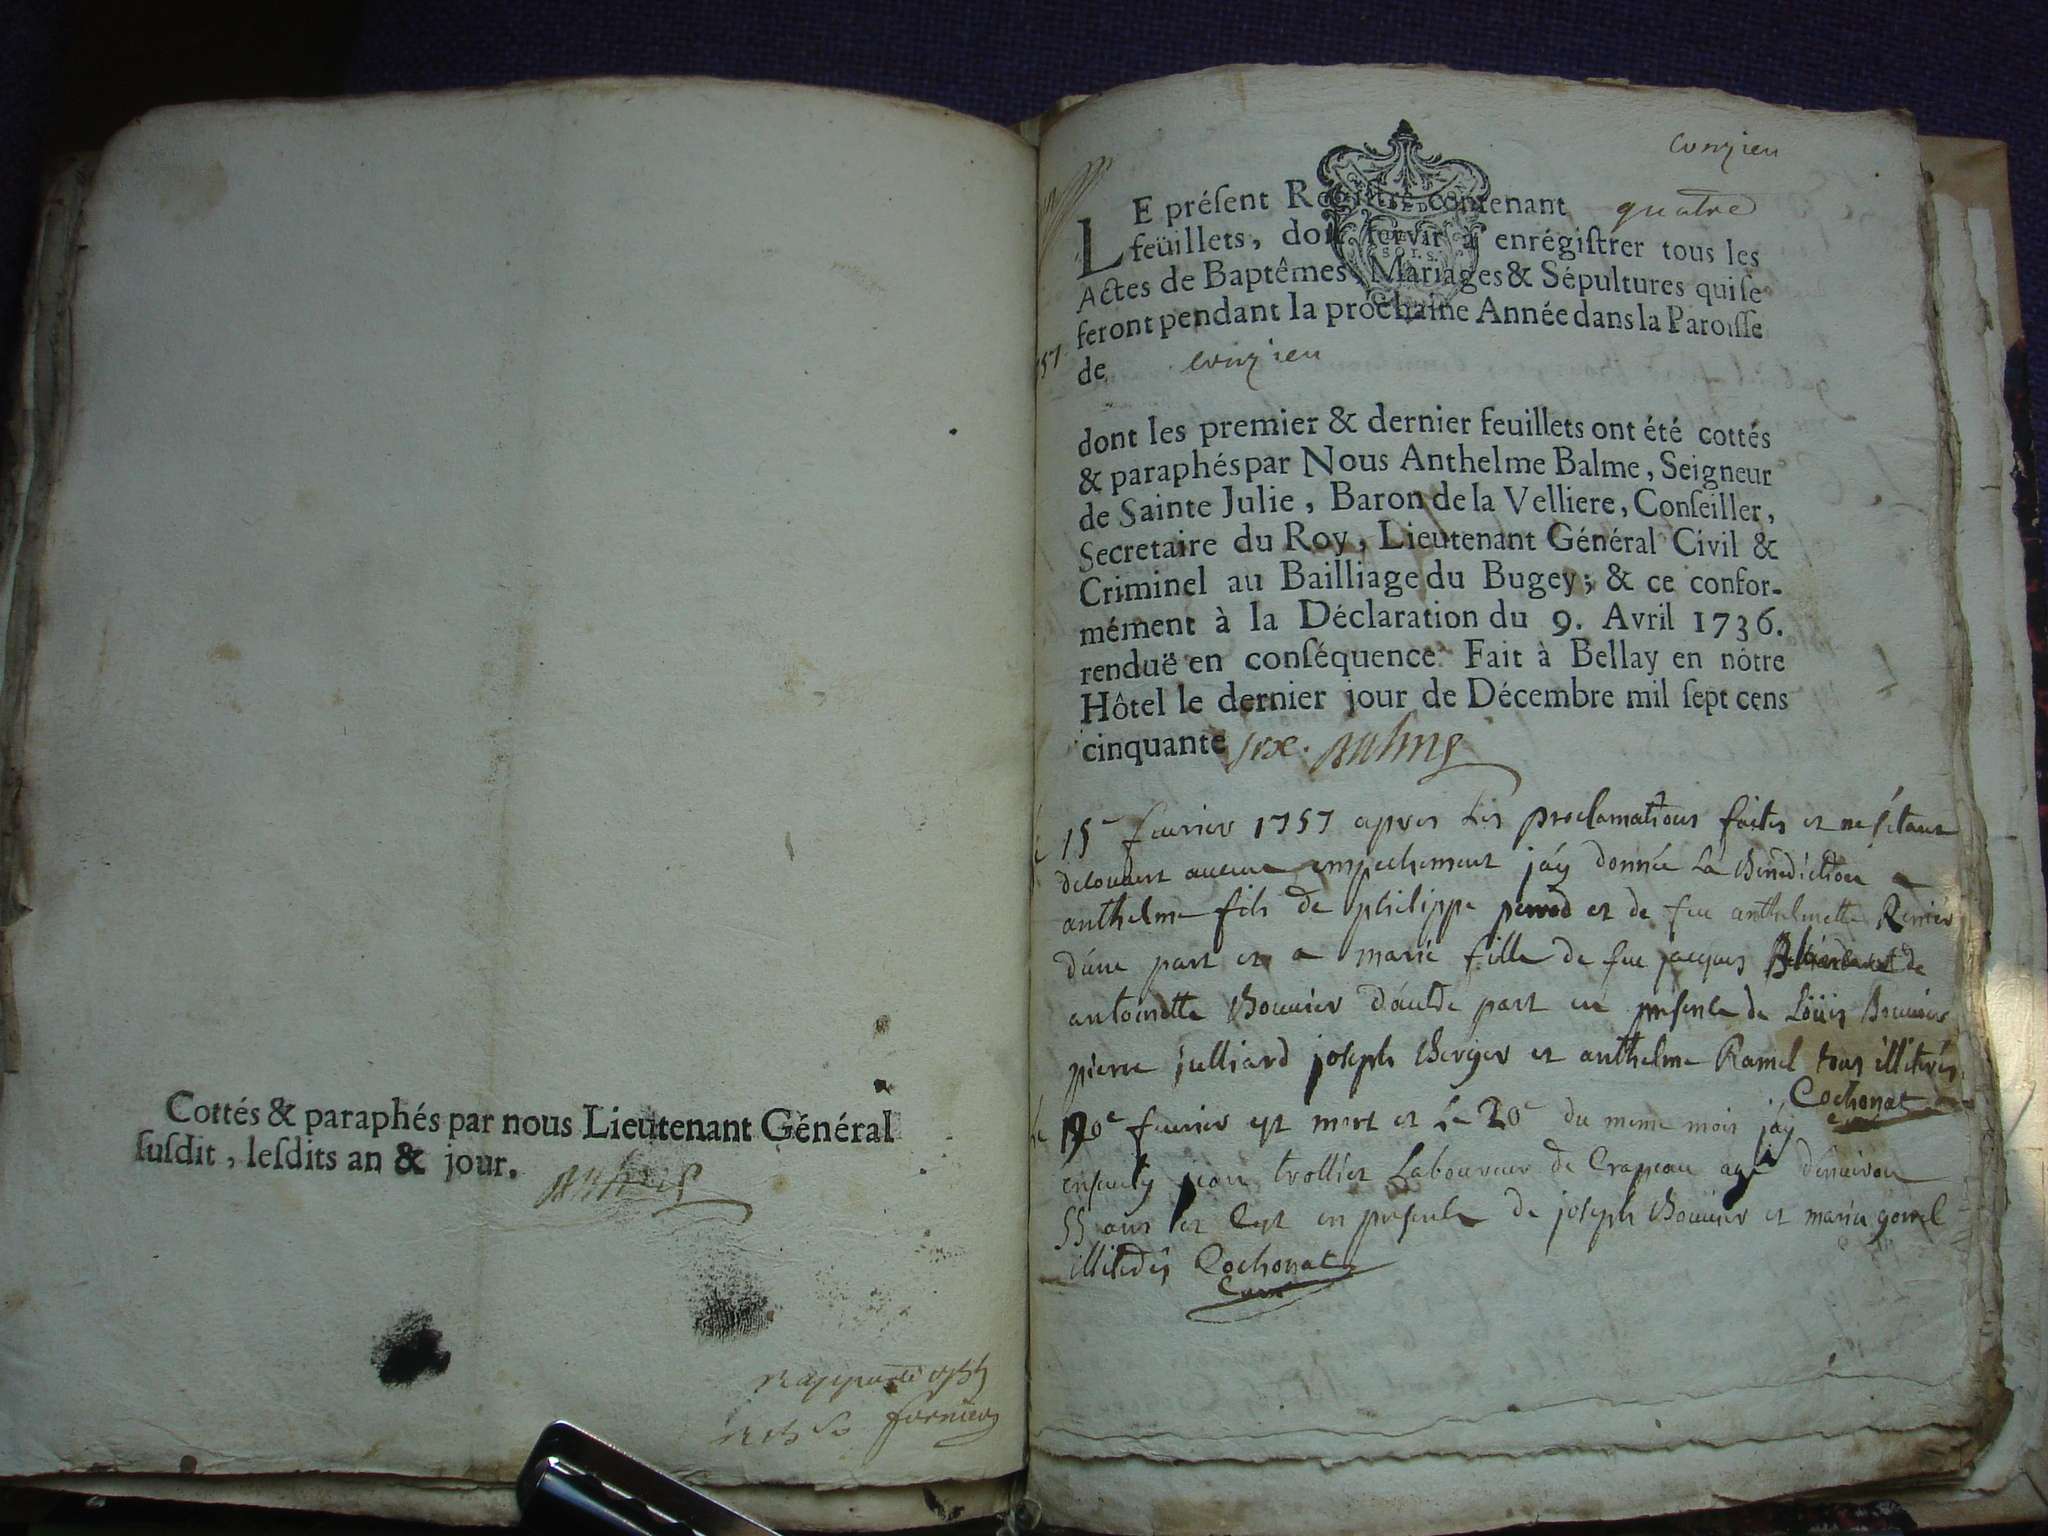 Cottés & paraphés par nous Lieutenant Général
susdit, lesdits an & jour.
fornier
conzieu
LE présent Registre contenant quatre
feüillets, doit servir à enrégistrer tous les
Actes de Baptêmes, Mariages & Sépultures qui se
feront pendant la prochaine Année dans la Paroisse
de conzieu
dont les premier & dernier feuillets ont été cottés
& paraphés par Nous Anthelme Balme, Seigneur
de Sainte Julie, Baron de la Velliere, Conseiller,
Secretaire du Roy, Lieutenant Général Civil &
Criminel au Bailliage du Bugey; & ce confor-
mément à la Déclaration du 9. Avril 1736.
renduë en conséquence. Fait à Bellay en nôtre
Hôtel le dernier jour de Décembre mil sept cens
cinquante six. Balme
le 15e fevrier 1757 apres les proclamations faites et ne s'etant
decouvert aucun empechement j'ay donnée la Benediction a
anthelme fils de philippe perrod et de feu anthelmette
d'une part et a marie fille de feu jacques et de
antoinette Bouvier d'autre part en presence de Loüis Bouvier
pierre julliard joseph Berger et anthelme Ramel tous illiterés
Cochonat curé
le fevrier est mort et le 20e du meme mois j'ay
ensevely jean trollier Laboureur de Crapeau agé d'environ
55 ans et c'est en presence de joseph Bouvier et marin
illiterés Cochonat
Curé